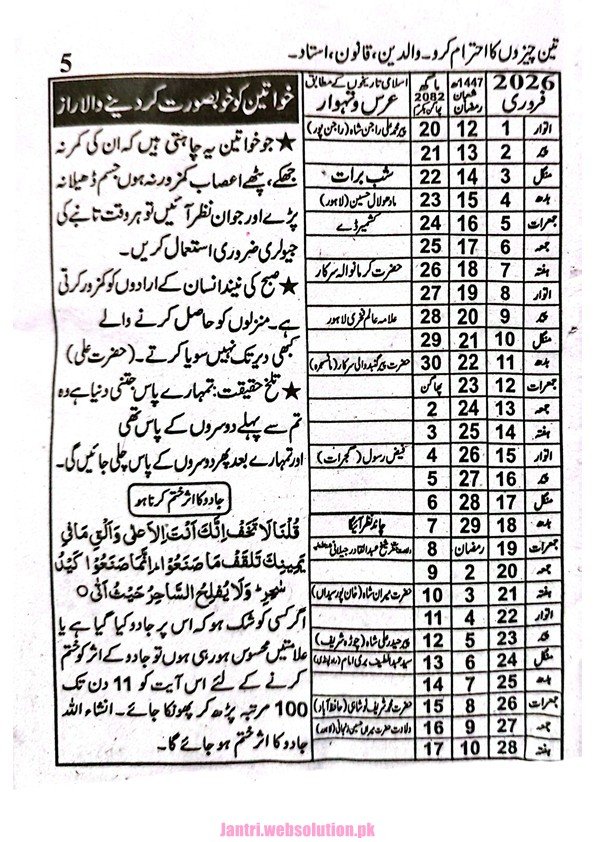 تین چیزوں کا احترام کرو۔ والدین، قانون، استاد۔
5
2026 فروری | 1447ھ شعبان رمضان | ماگھ 2082 پھاگن | اسلامی تاریخوں کے مطابق عرس و تہوار
اتوار 1 12 20 پیر محمد علی راجن شاہ (راجن پور)
پیر 2 13 21
منگل 3 14 22 شب برات
بدھ 4 15 23 مادھولال حسین (لاہور)
جمعرات 5 16 24 کشمیر ڈے
جمعہ 6 17 25
ہفتہ 7 18 26 حضرت کرمانوالہ سرکار
اتوار 8 19 27
پیر 9 20 28 علامہ عالم فخری لاہور
منگل 10 21 29
بدھ 11 22 30 حضرت پیر گنبد والی سرکار (مانسہرہ)
جمعرات 12 23 پھاگن
جمعہ 13 24 2
ہفتہ 14 25 3
اتوار 15 26 4 فیض رسول (گجرات)
پیر 16 27 5
منگل 17 28 6
بدھ 18 29 7 چاند نظر آئیگا
جمعرات 19 رمضان 8 شیخ عبدالقادر جیلانی
جمعہ 20 2 9
ہفتہ 21 3 10 حضرت میراں شاہ (خان پور سیداں)
اتوار 22 4 11
پیر 23 5 12 پیر حیدر علی شاہ (چورہ شریف)
منگل 24 6 13 سید عبداللطیف بری امام (راولپنڈی)
بدھ 25 7 14
جمعرات 26 8 15 حضرت محمد شریف نوشاہی (حافظ آباد)
جمعہ 27 9 16 ولادت حضرت میراں حسین زنجانی (لاہور)
ہفتہ 28 10 17
خواتین کو خوبصورت کر دینے والا راز
★ جو خواتین یہ چاہتی ہیں کہ ان کی کمر نہ
جھکے، پٹھے اعصاب کمزور نہ ہوں جسم ڈھیلا نہ
پڑے اور جوان نظر آئیں تو ہر وقت تانبے کی
جیولری ضروری استعمال کریں۔
★ صبح کی نیند انسان کے ارادوں کو کمزور کرتی
ہے۔ منزلوں کو حاصل کرنے والے
کبھی دیر تک نہیں سویا کرتے۔ (حضرت علی)
★ تلخ حقیقت: تمہارے پاس جتنی دنیا ہے وہ
تم سے پہلے دوسروں کے پاس تھی
اور تمہارے بعد پھر دوسروں کے پاس چلی جائیں گی۔
جادو کا اثر ختم کرنا ہو
قُلْنَا لَا تَخَفْ اِنَّكَ اَنْتَ الْاَعْلٰى وَاَلْقِ مَا فِيْ
يَمِيْنِكَ تَلْقَفْ مَا صَنَعُوْا اِنَّمَا صَنَعُوْا كَيْدُ
سٰحِرٍ وَلَا يُفْلِحُ السَّاحِرُ حَيْثُ اَتٰى
اگر کسی کو شک ہو کہ اس پر جادو کیا گیا ہے یا
علامتیں محسوس ہو رہی ہوں تو جادو کے اثر کو ختم
کرنے کے لئے اس آیت کو 11 دن تک
100 مرتبہ پڑھ کر پھونکا جائے۔ انشاء اللہ
جادو کا اثر ختم ہو جائے گا۔
Jantri.websolution.pk